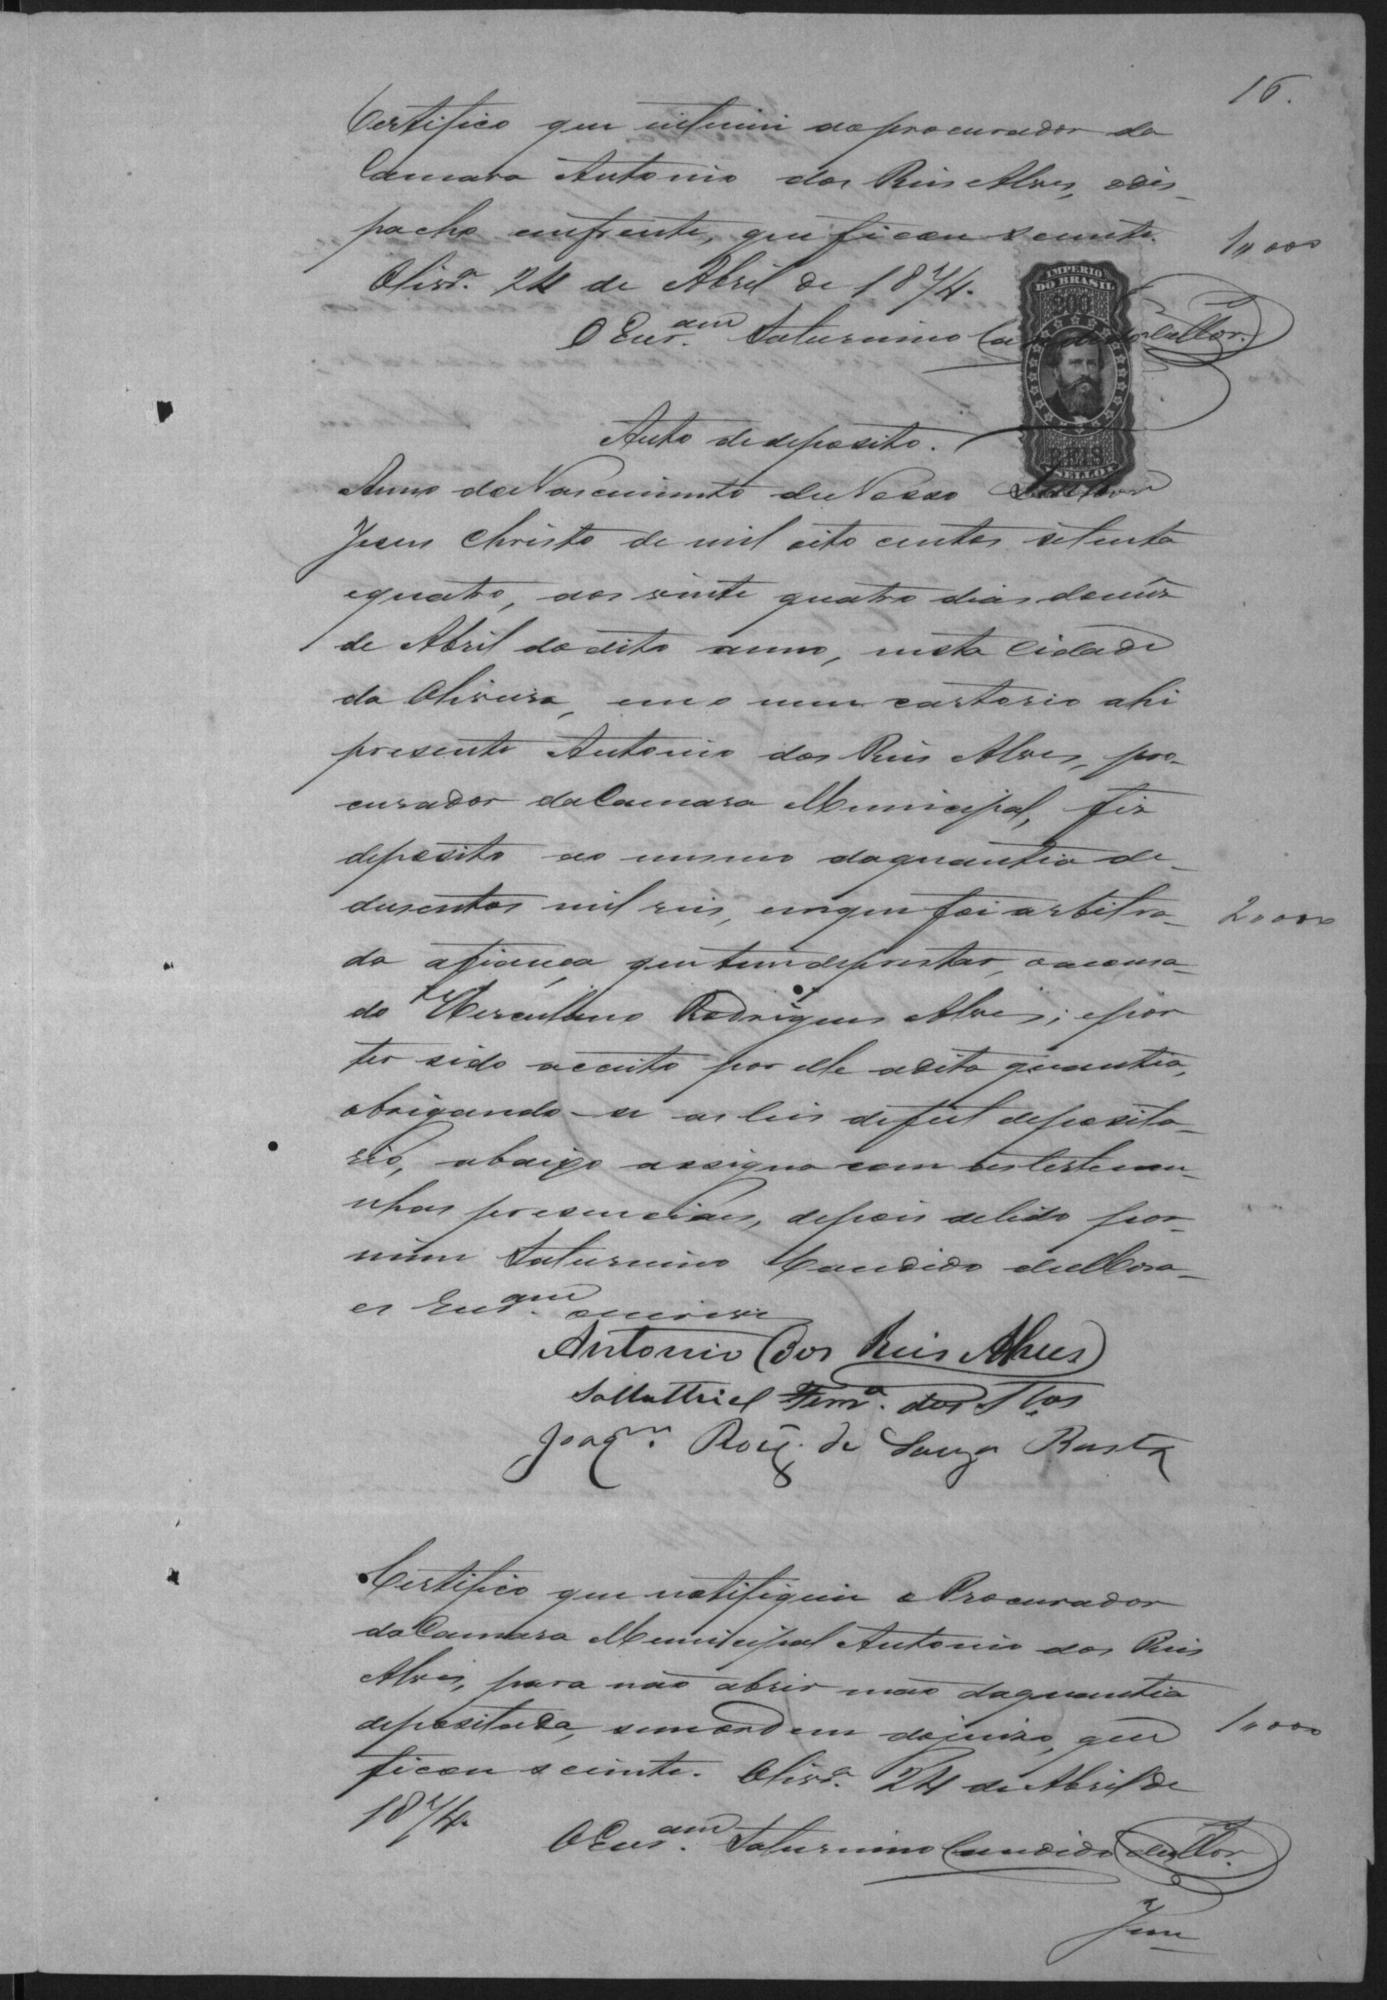 16.
Certifico que intimei ao procurador da
Camara Antonio dos Reis Alves, o des-
pacho emfrente, que ficou sciente. 1,,000
Olivrª. 24 de Abril de 1874.
IMPERIO
DO BRASIL
200
REIS
SELLO
O Escr.am Saturnino Candido de Mor.
Auto de deposito.
Anno do Nascimento de Nosso Senhor
Jesus Christo de mil oito centos setenta
e quatro, aos vinte quatro dias do mez
de Abril do dito anno, nesta Cidade
da Oliveira, em o meu cartorio ahi
presente Antonio dos Reis Alves, pro-
curador da Camara Municipal, fiz
deposito ao mesmo da quantia de
dusentos mil reis, em que foi arbitra- 2,,000
da a fiança que tem de prestar, o accusa-
do Herculano Rodrigues Alves; e por
ter sido acceito por elle a dita quantia,
obrigando-se as leis de fiel deposita-
rio, abaixo assigna com as testemu-
nhas presenciaes, depois de lido por
mim Saturnino Candido de Mora-
es Escr.am escrevi
Antonio dos Reis Alves
Ferrª. dos Stos
Joaqm. Roiz. de Souza
Certifico que notifiquei o Procurador
da Camara Municipal Antonio dos Reis
Alves, para não abrir mão da quantia
depositada, sem ordem do juizo, que 1,,000
ficou sciente. Olivrª. 24 de Abril de
1874.
O Escr.am Saturnino Candido de Mor.